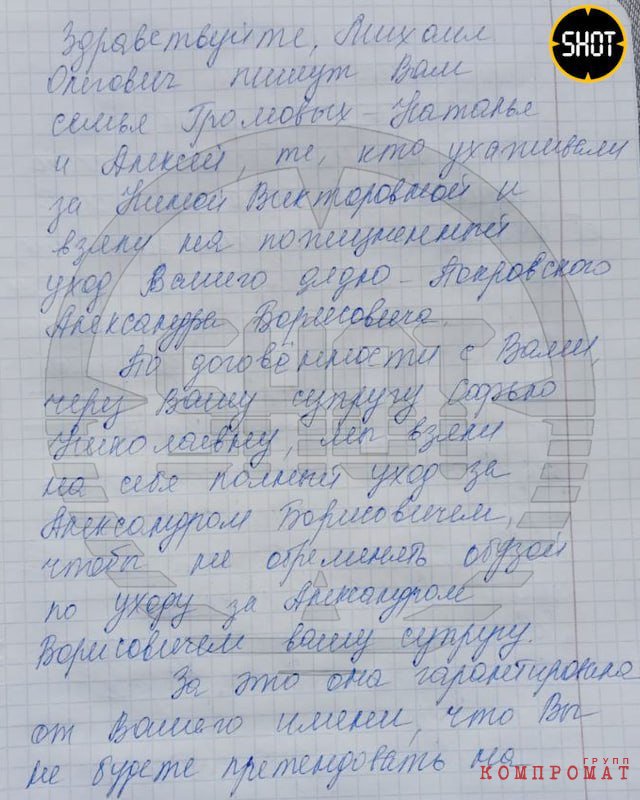 SHOT
Здравствуйте, Михаил
Олегович пишут Вам
семья Громовых - Наталья
и Алексей, те, кто ухаживали
за Ниной Викторовной и
взяли на пожизненный
уход Вашего дядю - Покровского
Александра Борисовича.
По договённости с Вами,
через Вашу супругу Софью
Николаевну, мы взяли
на себя полный уход за
Александром Борисовичем,
чтобы не обременять обузой
по уходу за Александром
Борисовичем вашу супругу.
За это она гарантировала
от Вашего имени, что Вы
не будете претендовать на
ГРУПП
КОМПРОМАТ
SHOT